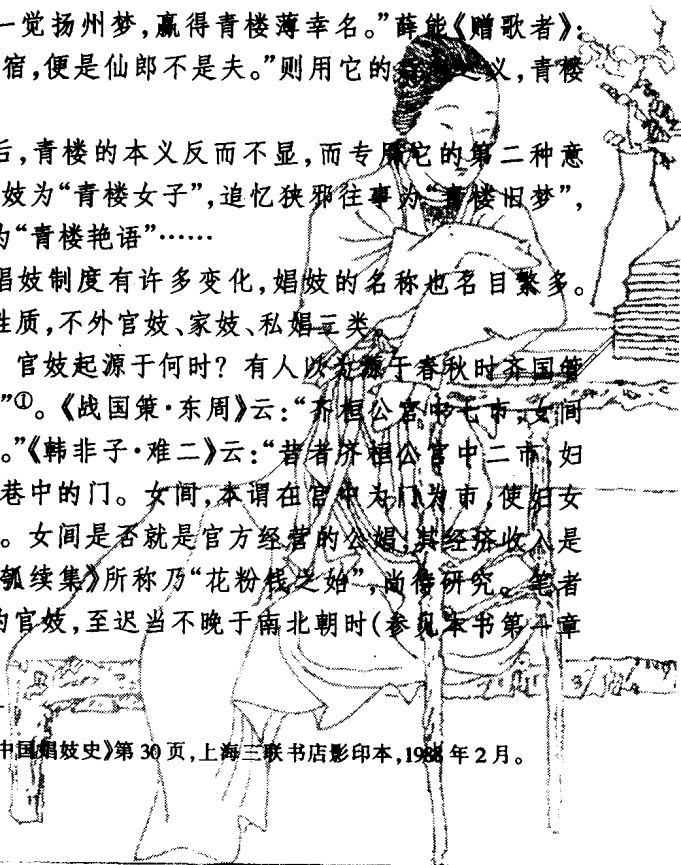 一觉扬州梦,赢得青楼薄幸名。”薛能《赠歌者》:
宿,便是仙郎不是夫。”则用它的 义,青楼
后,青楼的本义反而不显,而专用它的第二种意
妓为“青楼女子”,追忆狭邪往事为“青楼旧梦”,
为“青楼艳语”……
娼妓制度有许多变化,娼妓的名称也名目繁多。
性质,不外官妓、家妓、私娼三类。
官妓起源于何时?有人以为源于春秋时齐国管
”①。《战国策·东周》云:“齐桓公宫中七市,女闾
。”《韩非子·难二》云:“昔者济桓公宫中二市,妇
巷中的门。女闾,本谓在宫中为门为市,使妇女
。女闾是否就是官方经营的公娼,其经济收入是
瓠续集》所称乃“花粉钱之始”,尚待研究。笔者
的官妓,至迟当不晚于南北朝时(参见本书第一章
中国娼妓史》第30页,上海三联书店影印本,1988年2月。